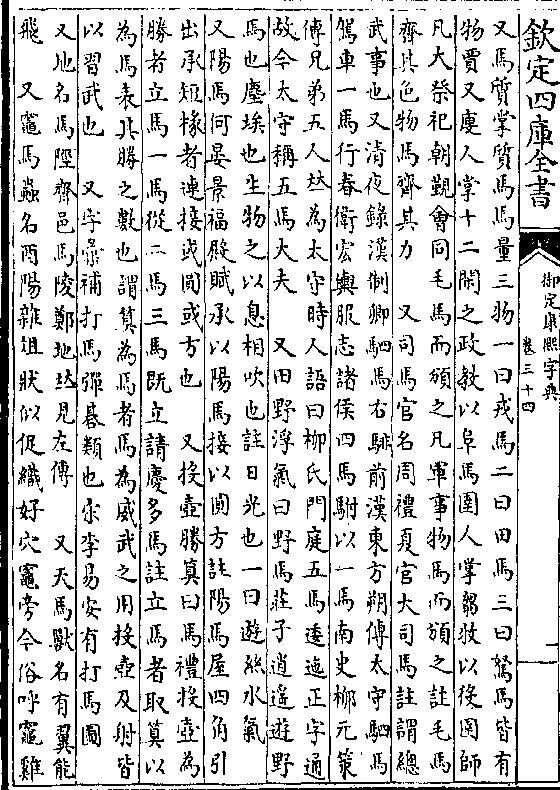 欽定四庫全書
御定康熙字典
卷三十四
又馬質掌質馬馬量三物一曰戎馬二曰田馬三曰駑馬皆有
物賈又廋人掌十二閑之政敎以阜馬圉人掌芻牧以役圉師
凡大祭祀朝覲會同毛馬而頒之凡軍事物馬而頒之註毛馬
齊其色物馬齊其力　又司馬官名周禮夏官大司馬註謂總
武事也又淸夜錄漢制卿駟馬右騑前漢東方朔傳太守駟馬
駕車一馬行春衛宏輿服志諸侯四馬駙以一馬南史柳元策
傳兄弟五人𠀤為太守時人語曰柳氏門庭五馬逶迤正字通
故今太守稱五馬大夫　又田野浮氣曰野馬莊子逍遙遊野
馬也塵埃也生物之以息相吹也註日光也一曰遊絲水氣
又陽馬何晏景福殿賦承以陽馬接以圓方註陽馬屋四角引
出承短椽者連接或圓或方也　又投壺勝算曰馬禮投壺為
勝者立馬一馬從二馬三馬既立請慶多馬註立馬者取算以
為馬表其勝之數也謂算為馬者馬為威武之用投壺及射皆
以習武也　又字彙補打馬彈棊類也宋李易安有打馬圖
又地名馬陘齊邑馬陵鄭地𠀤見左傳　又天馬獸名有翼能
飛　又竈馬蟲名酉陽雜俎狀似促織好穴竈旁今俗呼竈雞